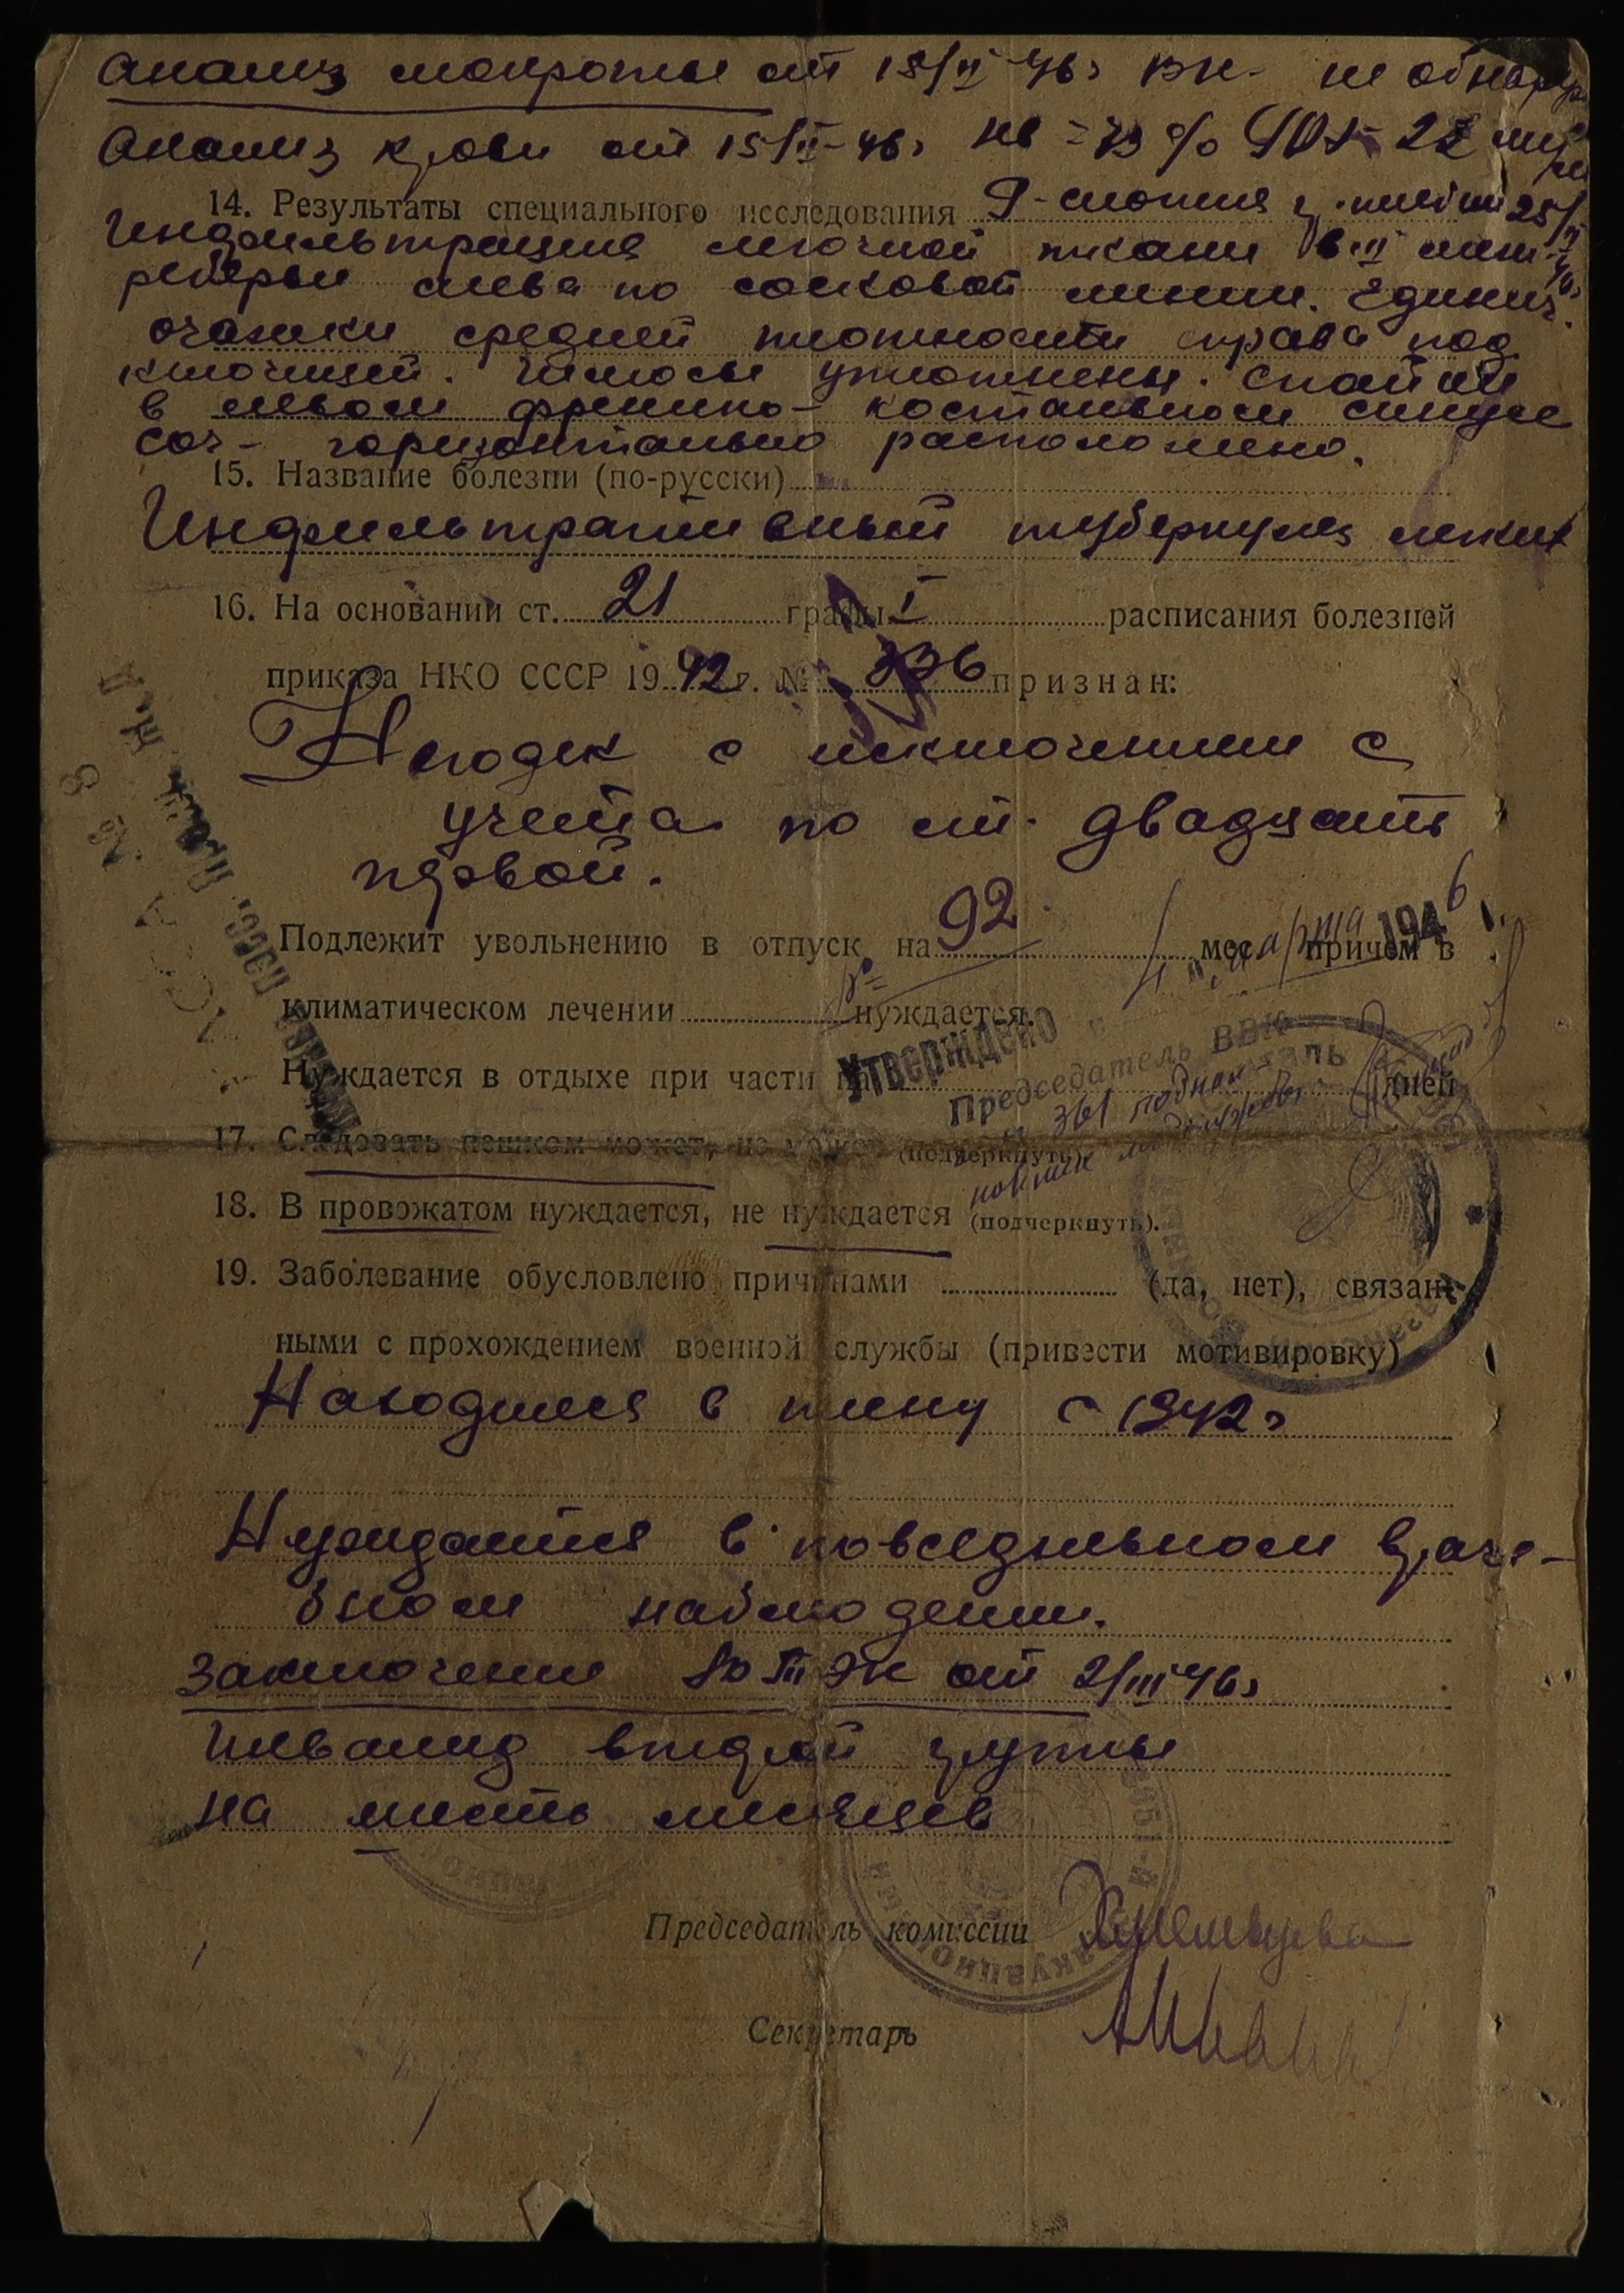 Анализ мокроты от 15/II-46г ВК- не обнаруж
Анализ крови от 15/II-46г Нв =73% РОЭ-
14. Результаты специального исследования R-скопия гр. клетки 25/II 46г
Инфильтрация легочной ткани в II меж-
реберьи слева по сосковой линии. Единич.
очажки средней плотности справа под
ключицей. Гилюсы уплотнены. Спайки
в левом френико-костальном синусе
Сог- горизонтально расположено.
15. Название болезни (по-русски)
Инфильтративный туберкулез легких
16. На основании ст. 21 графы I расписания болезней
приказа НКО СССР 1942 г. № 336 признан:
Негоден с исключением с
учета по ст. двадцать
первой.
Подлежит увольнению в отпуск на мес. причем в
92
4 " марта 1946
климатическом лечении нуждается.
Утверждено
Председатель ВВК
Нуждается в отдыхе при части на дней
17. Следовать пешком может, не может (подчеркнуть).
18. В провожатом нуждается, не нуждается (подчеркнуть).
19. Заболевание обусловлено причинами (да, нет), связан-
ными с прохождением военной службы (привести мотивировку)
Находился в плену с 1942г
Нуждается в повседневном враче-
бном наблюдении.
Заключение ВТЭК от 2/III 46г
Инвалид второй группы
на шесть месяцев
Председатель комиссии
Секретарь